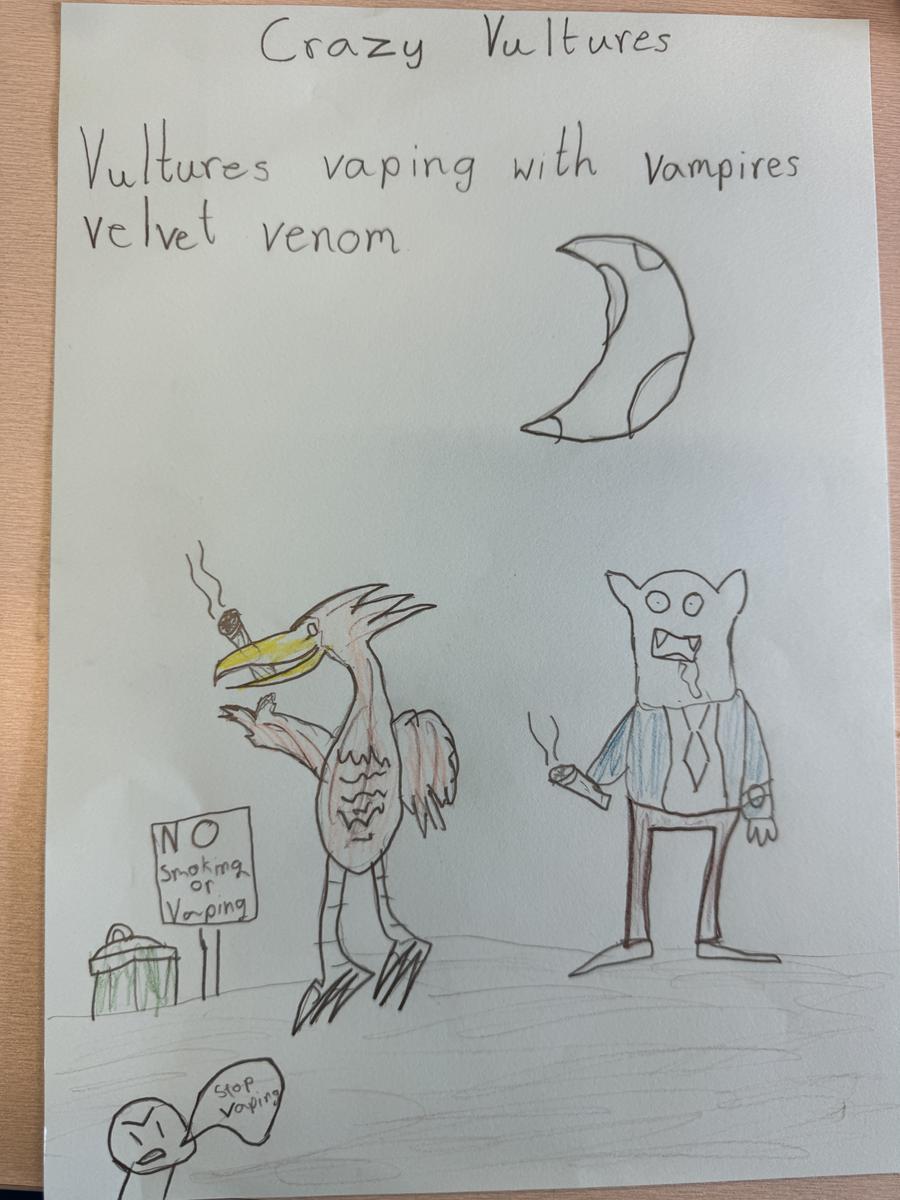 Crazy Vultures
Vultures vaping with vampires
velvet venom
NO
Smoking
or
Vaping
Stop
vaping